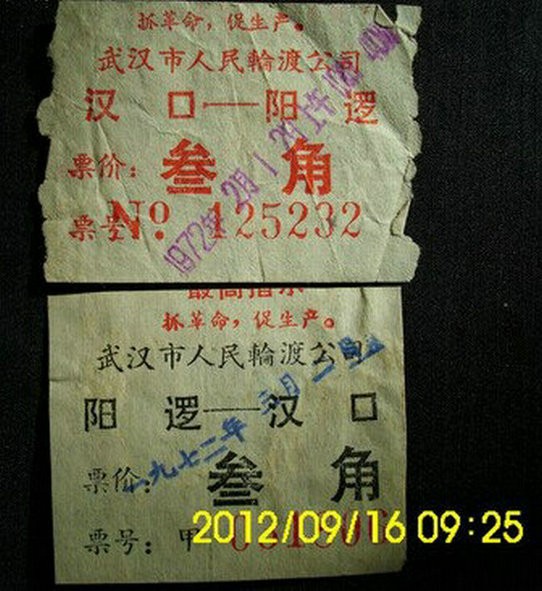 抓革命，促生产。
武汉市人民輪渡公司
汉口——阳逻
票价：叁角
票号 No. 125232
1972年2月1日
最高指示
抓革命，促生产。
武汉市人民輪渡公司
阳逻——汉口
一九七二年 月一
票价：叁角
票号：甲
2012/09/16 09:25